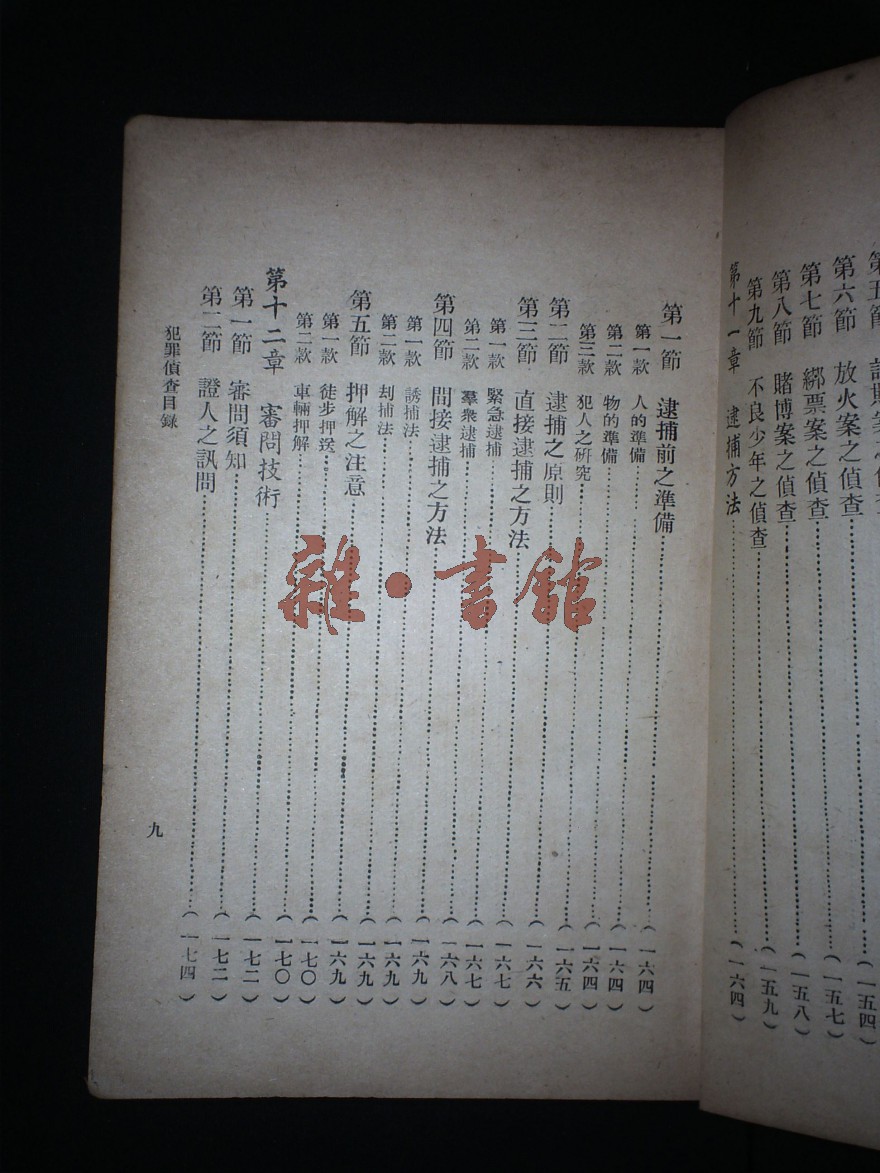 第六節 放火案之偵查…………(一五四)
第七節 綁票案之偵查…………(一五七)
第八節 賭博案之偵查…………(一五八)
第九節 不良少年之偵查…………(一五九)
第十一章 逮捕方法…………(一六四)
第一節 逮捕前之準備…………(一六四)
第一款 人的準備…………(一六四)
第二款 物的準備…………(一六四)
第三款 犯人之研究…………(一六五)
第二節 逮捕之原則…………(一六六)
第三節 直接逮捕之方法…………(一六七)
第一款 緊急逮捕…………(一六七)
第二款 羣衆逮捕…………(一六八)
第四節 間接逮捕之方法…………(一六九)
第一款 誘捕法…………(一六九)
第二款 刦捕法…………(一六九)
第五節 押解之注意…………(一六九)
第一款 徒步押送…………(一七〇)
第二款 車輛押解…………(一七〇)
第十二章 審問技術…………(一七二)
第一節 審問須知…………(一七二)
第二節 證人之訊問…………(一七四)
犯罪偵查目錄
九
雜·書館